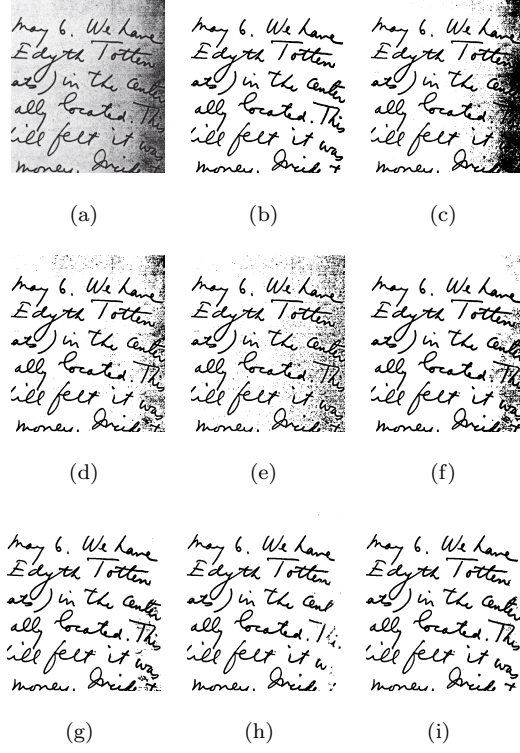 may 6. We have
Edyth Totten
ats) in the center
ally located. This
ill felt it was
money. Incide +
(a)
may 6. We have
Edyth Totten
ats) in the center
ally located. This
ill felt it was
money. Incide +
(b)
may 6. We have
Edyth Totten
ats) in the center
ally located. This
ill felt it
money.
(c)
may 6. We have
Edyth Totten
ats) in the center
ally located. This
ill felt it was
money. Incide
(d)
may 6. We have
Edyth Totten
ats) in the center
ally located. This
ill felt it was
money. Incide
(e)
may 6. We have
Edyth Totten
ats) in the center
ally located. This
ill felt it was
money. Incide
(f)
may 6. We have
Edyth Totten
ats) in the center
ally located. This
ill felt it was
money. Incide +
(g)
may 6. We have
Edyth Totten
ats) in the cent
ally located. Th
ill felt it w
money. Incide
(h)
may 6. We have
Edyth Totten
ats) in the center
ally located. This
ill felt it was
money. Incide +
(i)